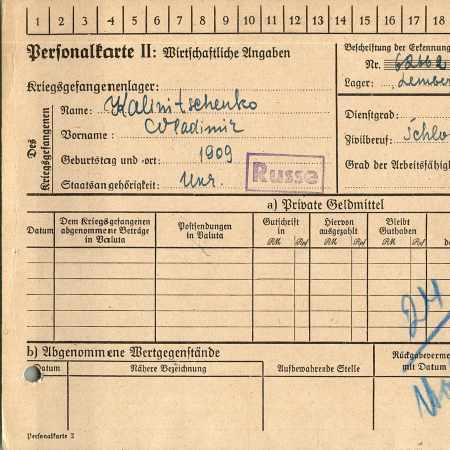 1 2 3 4 5 6 7 8 9 10 11 12 13 14 15 16 17 18
Personalkarte II: Wirtschaftliche Angaben
Beschriftung der Erkennung
Nr.
Kriegsgefangenenlager:
Lager: Lember
Des Kriegsgefangenen
Name: Kalinitschenko
Dienstgrad:
Vorname: Wladimir
Zivilberuf: Schlo
Geburtstag und -ort: 1909
Russe
Grad der Arbeitsfähig
Staatsangehörigkeit: Ukr.
a) Private Geldmittel
Datum
Dem Kriegsgefangenen abgenommene Beträge in Valuta
Postsendungen in Valuta
Gutschrift in
RM Rpf
Hiervon ausgezahlt
RM Rpf
Bleibt Guthaben
RM Rpf
24
b) Abgenommene Wertgegenstände
Datum
Nähere Bezeichnung
Aufbewahrende Stelle
Rückgabeverme
mit Datum
Personalkarte 2